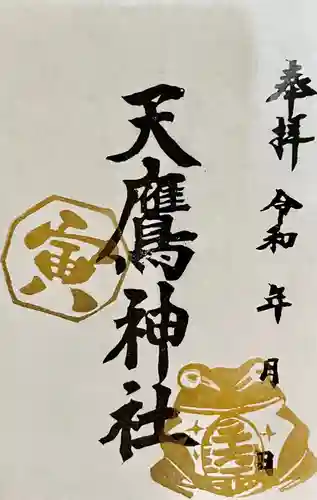 奉拝
令和 年 月 日
天鷹神社
寅